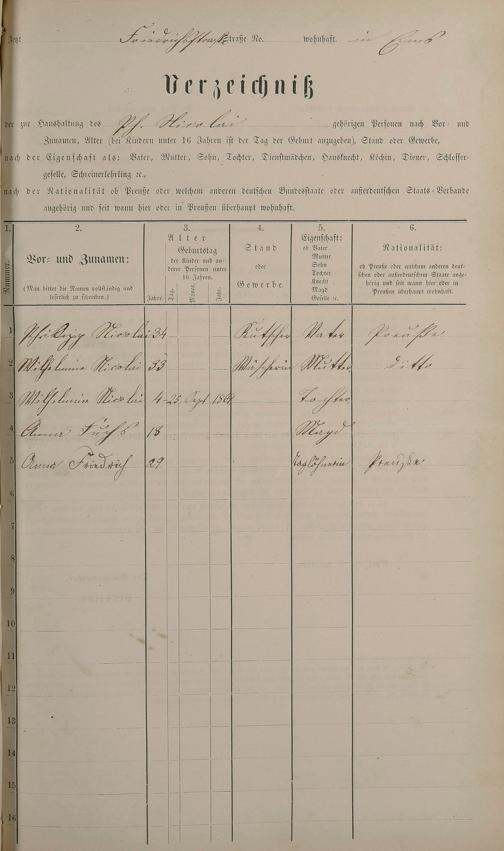 Jetzt Friedrichstraße Straße No. wohnhaft. in Ems
Verzeichniß
der zur Haushaltung des Ph. Nicolai gehörigen Personen nach Vor- und
Zunamen, Alter (bei Kindern unter 16 Jahren ist der Tag der Geburt anzugeben), Stand oder Gewerbe,
nach der Eigenschaft als: Vater, Mutter, Sohn, Tochter, Dienstmädchen, Hausknecht, Köchin, Diener, Schlosser-
geselle, Schreinerlehrling ec.,
nach der Nationalität ob Preuße oder welchem anderen deutschen Bundesstaate oder außerdeutschen Staats-Verbande
angehörig und seit wann hier oder in Preußen überhaupt wohnhaft.
1.
Nummer.
2.
Vor- und Zunamen:
(Man bittet die Namen vollständig und
leserlich zu schreiben.)
3.
Alter
Geburtstag
der Kinder und an-
derer Personen unter
16 Jahren.
Jahre. Tag. Monat. Jahr.
4.
Stand
oder
Gewerbe.
5.
Eigenschaft:
ob Vater
Mutter
Sohn
Tochter
Knecht
Magd
Geselle ec.
6.
Nationalität:
ob Preuße oder welchem anderen deut-
schen oder außerdeutschen Staate ange-
hörig und seit wann hier oder in
Preußen überhaupt wohnhaft.
1 Philipp Nicolai 34 Kutscher Vater Preuße
2 Wilhelmine Nicolai 33 Wäscherin Mutter ditto
3 Wilhelmine Nicolai 4 25 Sept. Tochter
4 Anna Fuchs 18 Magd
5 Anna Friedrich 29 Taglöhnerin Preuße
6
7
8
9
10
11
12
13
14
15
16